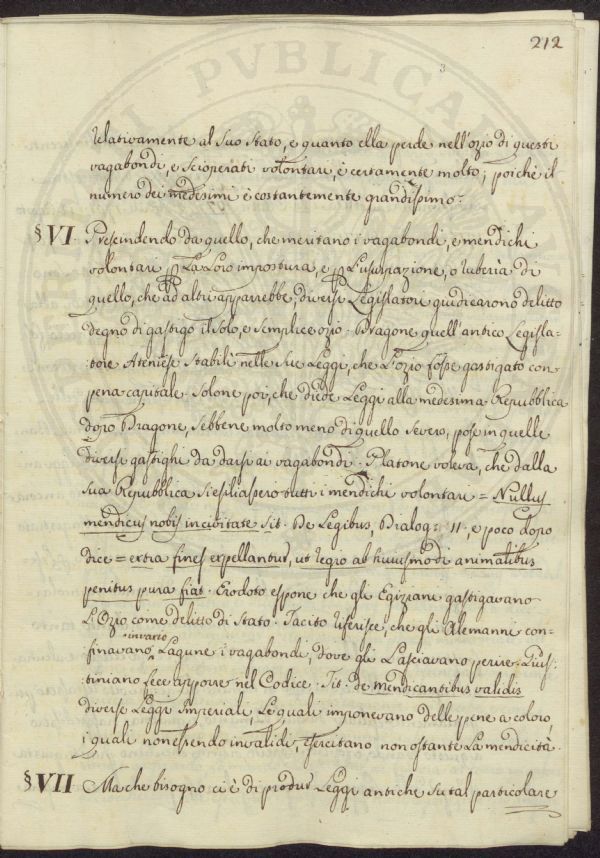 212
3
PVBLICAE
relativamente al suo stato, e quanto ella perde nell'ozio di questi
vagabondi, e scioperati volontari, è certamente molto; poichè il
numero dei medesimi è costantemente grandissimo.
§ VI. Prescindendo da quello, che meritano i vagabondi, e mendichi
volontari p la loro impostura, e p l'usurpazione, o ruberia di
quello, che ad altri apparrebbe, diversi Legislatori giudicarono delitto
degno di gastigo il solo, e semplice ozio. Dragone quell'antico Legisla=
=tore Ateniese stabilì nelle sue Leggi, che l'ozio fosse gastigato con
pena capitale. Solone poi, che diede Leggi alla medesima Repubblica
dopo Dragone, sebbene molto meno di quello severo, pose in quelle
diversi gastighi da darsi ai vagabondi. Platone voleva, che dalla
sua Repubblica si esiliassero tutti i mendichi volontari = Nullus
mendicus nobis in civitate sit. De Legibus, Dialog: 11, e poco dopo
dice = extra fines expellantur, ut regio ab huiusmodi animalibus
penitus pura fiat. Erodoto espone che gli Egiziani gastigavano
L'Ozio come delitto di Stato. Tacito riferisce, che gli Alemanni con=
finavano in varie Lagune i vagabondi, dove gli lasciavano perire. Gius=
=tiniano fece apporre nel Codice. Tit. de mendicantibus validis
diverse Leggi Imperiali le quali imponevano delle pene a coloro,
i quali non essendo invalidi, esercitano non ostante la mendicità.
§ VII Ma che bisogno ci è di produr Leggi antiche su tal particolare